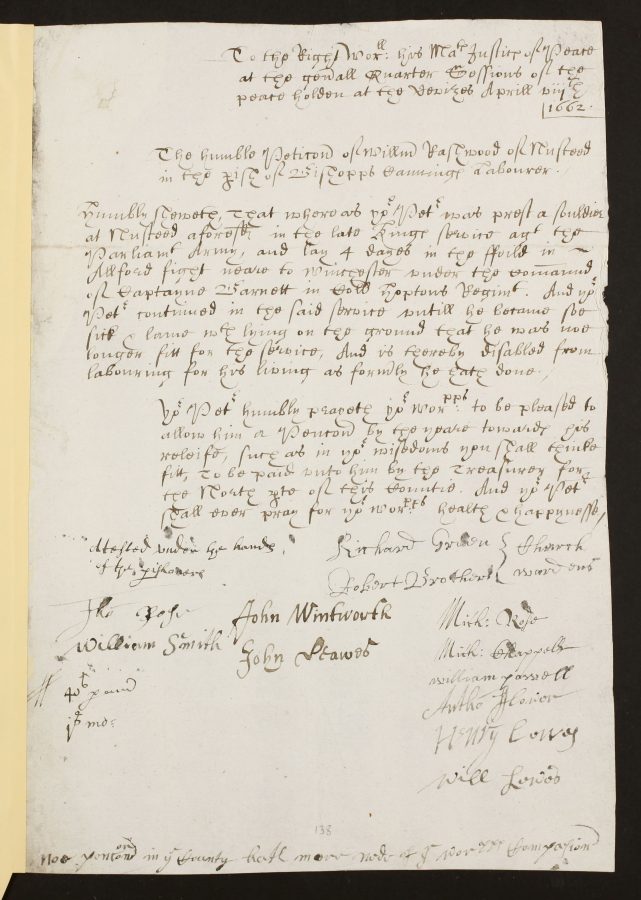 To the Right Wor:ll his Ma:tes Justices of Peace
at the gen'all Quarter Sessions of the
peace holden at the Devizes Aprill viijth
1662.
The humble Peticon of Willm Rashwood of Nusteed
in the p'ish of Bishopps Cannings Labourer.
Humbly sheweth, That whereas yo:r Pet:r was prest a souldier
at Nusteed aforesd: in the late Kings service agt the
Parliamt Army, and lay 4 dayes in the ffeild in
Allford fight neare to Winchester under the comaund
of Captayne Barnett in Coll Hoptons Regimt. And yo:r
Pet:r continued in the said service untill he became soe
sick & lame wth lying on the ground that he was noe
longer fitt for the service, And is thereby disabled from
labouring for his living as form'ly he hath done.
Yo:r Pet:r humbly prayeth yo:r Wor:pps to be pleased to
allow him a Pencon by the yeare towards his
releife, such as in yo:r wisedoms you shall thinke
fitt, To be paid unto him by the Treasurer for
the North p'te of this Countie. And yo:r Pet:r
shall ever pray for yo:r wor:pps health & happynesse
Atested under the hands
of the p'ishoners
Richard Green } Church
Robert Brother } wardens
Tho Rose John Wintworth Mich: Rose
William Smith John Reawes Mich: Chappell
william powell
4 pound Antho fflower
Henry Lewes
Will Lewes
138
Noe pencon in ye County hath more nede of yr wor:pps Compasion